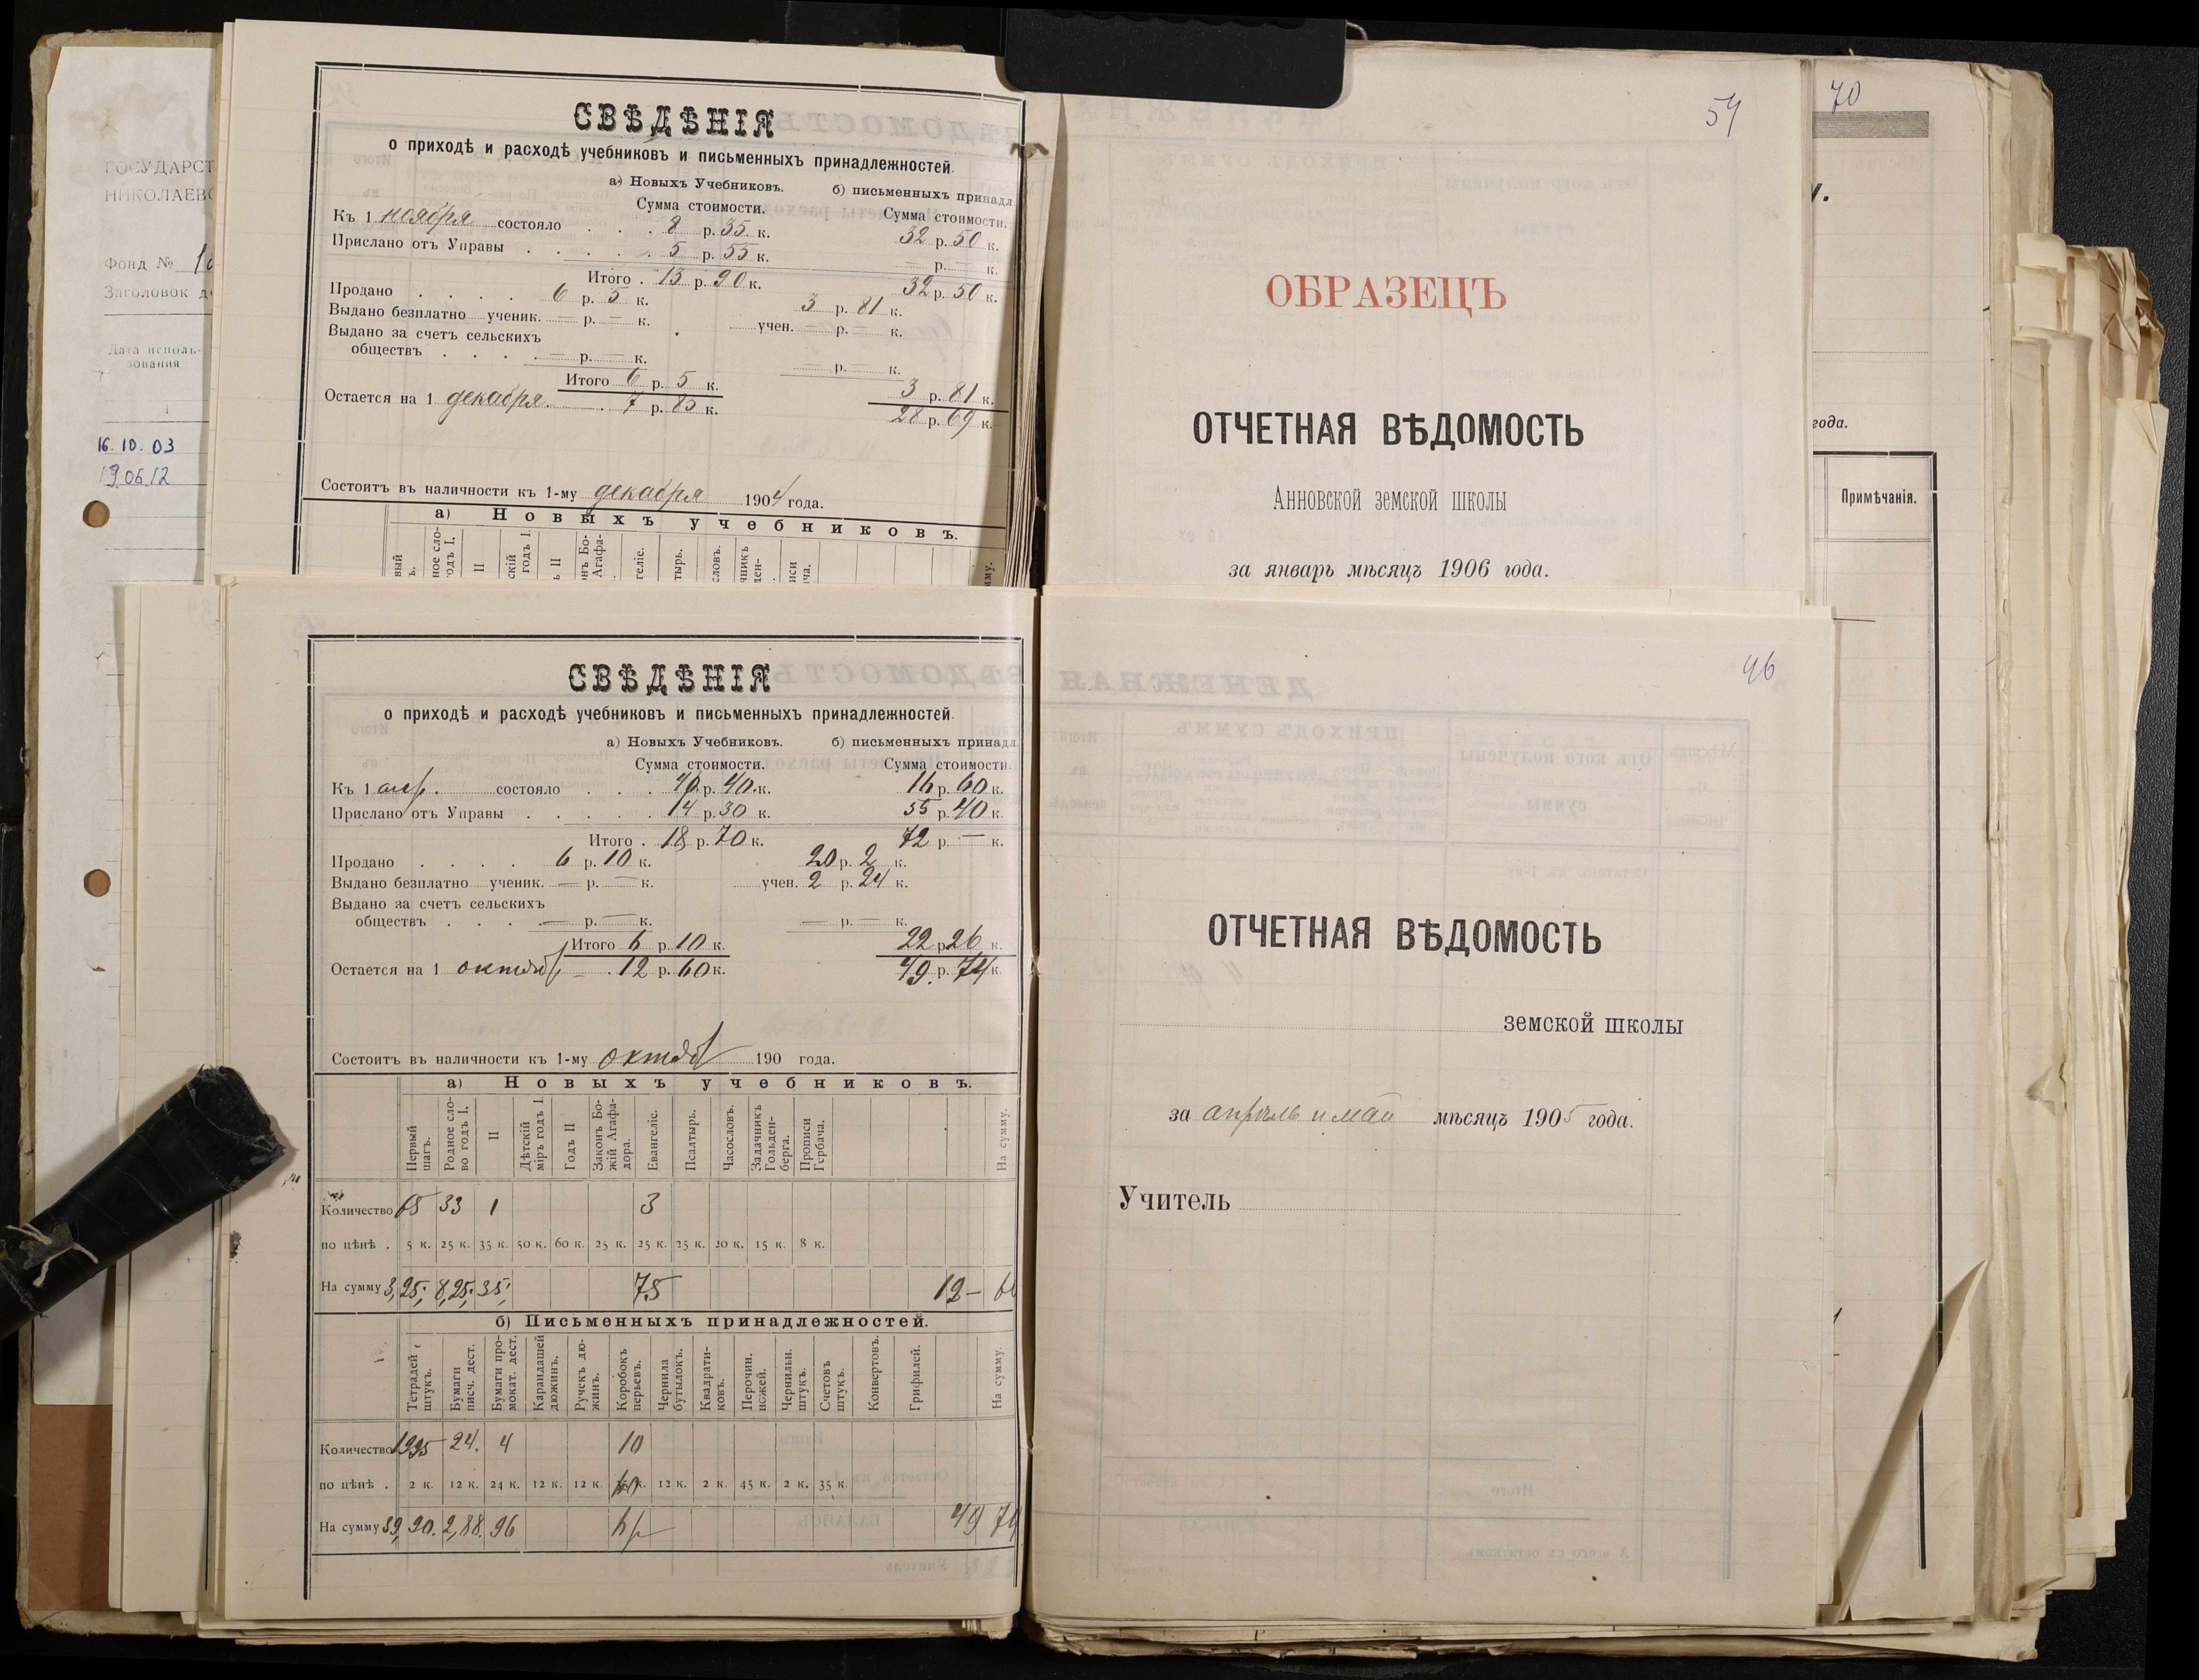 ГОСУДАРСТ
НИКОЛАЕВС
Фонд №
Заголовок д
Дата исполь-
зования
16.10.03
19.06.12
СВѢДѢНІЯ
о приходѣ и расходѣ учебниковъ и письменныхъ принадлежностей.
а) Новыхъ Учебниковъ. б) письменныхъ принадл.
Сумма стоимости. Сумма стоимости.
Къ 1 ноября состояло . . . 8 р. 35 к. 32 р. 50 к.
Прислано отъ Управы . . . . 5 р. 55 к. — р. — к.
Итого . 13 р. 90 к. 32 р. 50 к.
Продано . . . . 6 р. 5 к. 3 р. 81 к.
Выдано безплатно ученик. — р. — к. учен. — р. — к.
Выдано за счет сельскихъ
обществъ . . . . — р. — к. р. — к.
Итого 6 р. 5 к. 3 р. 81 к.
Остается на 1 декабря . 7 р. 85 к. 28 р. 69 к.
Состоитъ въ наличности къ 1-му декабря 1904 года.
а) Новыхъ учебниковъ.
СВѢДѢНІЯ
о приходѣ и расходѣ учебниковъ и письменныхъ принадлежностей.
а) Новыхъ Учебниковъ. б) письменныхъ принадл.
Сумма стоимости. Сумма стоимости.
Къ 1 апр. состояло . . . р. 40 к. 16 р. 60 к.
Прислано отъ Управы . . . . 14 р. 30 к. 55 р. 40 к.
Итого . 18 р. 70 к. 72 р. — к.
Продано . . . . 6 р. 10 к. 20 р. 2 к.
Выдано безплатно ученик. — р. — к. учен. 2 р. 24 к.
Выдано за счет сельскихъ
обществъ . . . — р. — к. — р. — к.
Итого 6 р. 10 к. 22 р. 26 к.
Остается на 1 октяб . 12 р. 60 к. 49 р. 74 к.
Состоитъ въ наличности къ 1-му октяб 190 года.
а) Новыхъ учебниковъ.
Первый шагъ. Родное сло-во годъ I. II Дѣтскій міръ годъ I. Годъ II Законъ Бо-жій Агафа-дора. Евангеліе. Псалтырь. Часословъ. Задачникъ Гольден-берга. Прописи Гербача. На сумму.
Количество 65 33 1 3
по цѣнѣ . 5 к. 25 к. 35 к. 50 к. 60 к. 25 к. 25 к. 25 к. 20 к. 15 к. 8 к.
На сумму 3,25. 8,25. 35. 75 12— 60
б) Письменныхъ принадлежностей.
Тетрадей штукъ. Бумаги писч. дест. Бумаги про-мокат. дест. Карандашей дюжинъ. Ручекъ дю-жинъ. Коробокъ перьевъ. Чернила бутылокъ. Квадрати-ковъ. Перочин. ножей. Чернильн. штукъ. Счетовъ штукъ. Конвертовъ. Грифилей. На сумму.
Количество 1995 24. 4 10
по цѣнѣ . 2 к. 12 к. 24 к. 12 к. 12 к. к. 12 к. 2 к. 45 к. 2 к. 35 к.
На сумму 39,90. 2,88. 96 6 р 49 74
54
ОБРАЗЕЦЪ
ОТЧЕТНАЯ ВѢДОМОСТЬ
Анновской земской школы
за январь мѣсяцъ 1906 года.
46
ОТЧЕТНАЯ ВѢДОМОСТЬ
земской школы
за апрѣль и май мѣсяцъ 1905 года.
Учитель
70
года.
Примѣчанія.